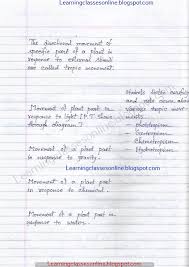 Learningclassesonline.blogspot.com
The directional movement of
specific part of a plant in
response to external stimuli
are called tropic movement.
Students listen carefully
and note down about
various tropic move-
ments -
Movement of plant part in
response to light (P.T. Shows
through diagram)
- Phototropism
- Geotropism
- Chemotropism
- Hydrotropism
Movement of a plant part
in response to gravity.
Learningclassesonline.blogspot.com
Movement of a plant part
in response to chemical.
Movement of a plant part in
response to water.
Learningclassesonline.blogspot.com